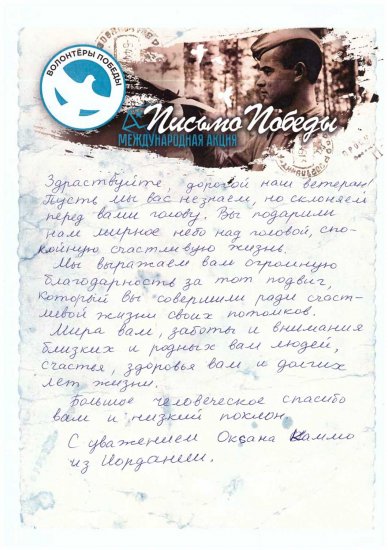 ВОЛОНТЁРЫ ПОБЕДЫ
Письмо Победы
МЕЖДУНАРОДНАЯ АКЦИЯ
Здраствуйте, дорогой наш ветеран
Пусть мы вас незнаем, но склоняем
перед вами голову. Вы подарили
нам мирное небо над головой, спо-
койную счастливую жизнь.
Мы выражаем вам огромную
благодарность за тот подвиг,
который вы совершили ради счаст-
ливой жизни своих потомков.
Мира вам, заботы и внимания
близких и родных вам людей,
счастья, здоровья вам и долгих
лет жизни.
Большое человеческое спасибо
вам и низкий поклон
С уважением Оксана Каммо
из Иордании.